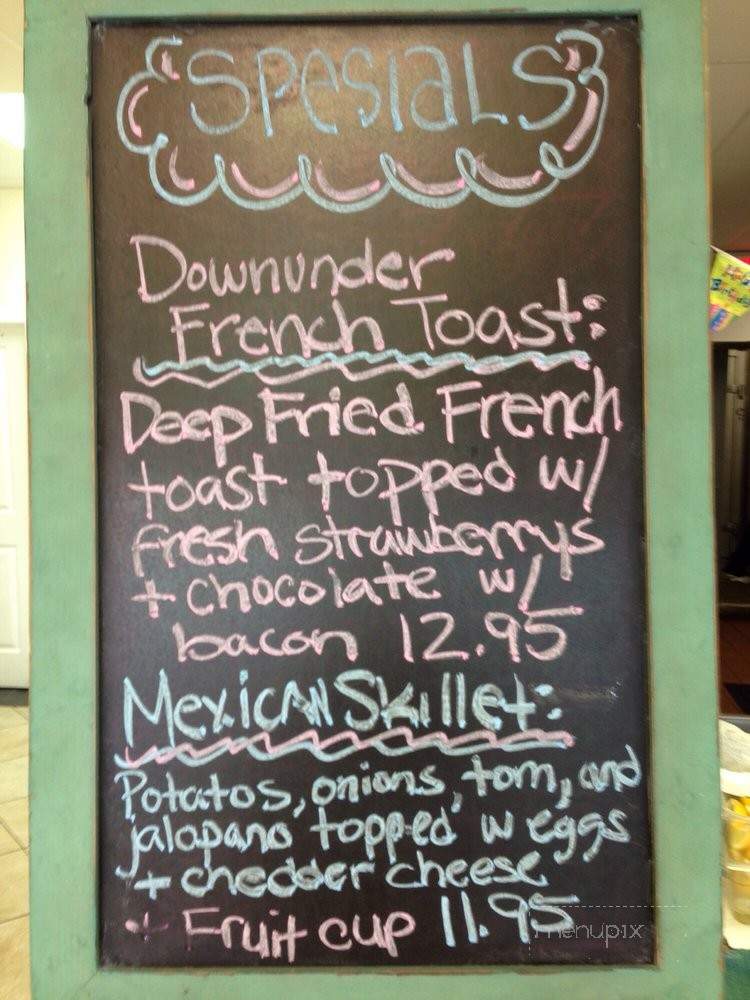 SPesiaLS
Downunder
French Toast:
Deep Fried French
toast topped w/
fresh strawberrys
+ chocolate w/
bacon 12.95
Mexican Skillet:
Potatos, onions, tom, and
jalopano topped w eggs
+ chedder cheese
+ Fruit cup 11.95
menupix